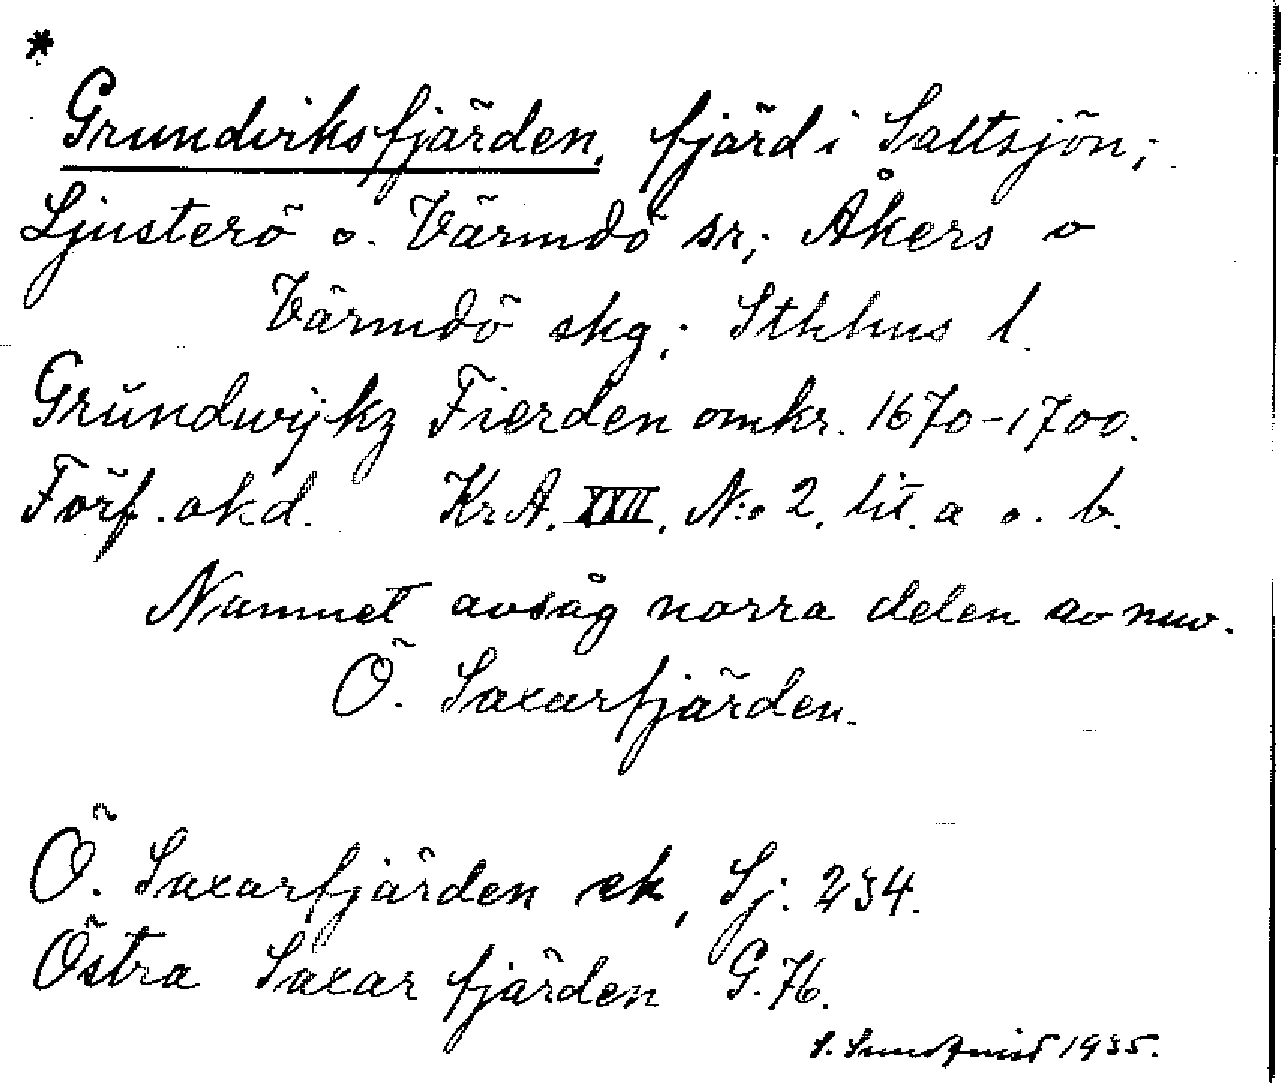 *
Grundviksfjärden, fjärd i Saltsjön;
Ljusterö o. Värmdö sr; Åkers o
Värmdö skg; Sthlms l.
Grŭndwijkz Fierden omkr. 1670-1700.
Förf. okd. Kr.A. XXII, N:o 2, lit. a o. b.
Namnet avsåg norra delen av nuv.
Ö. Saxarfjärden.
Ö. Saxarfjärden ek, Sj. 234.
Östra Saxar fjärden G. 76.
S. Sundqvist 1935.